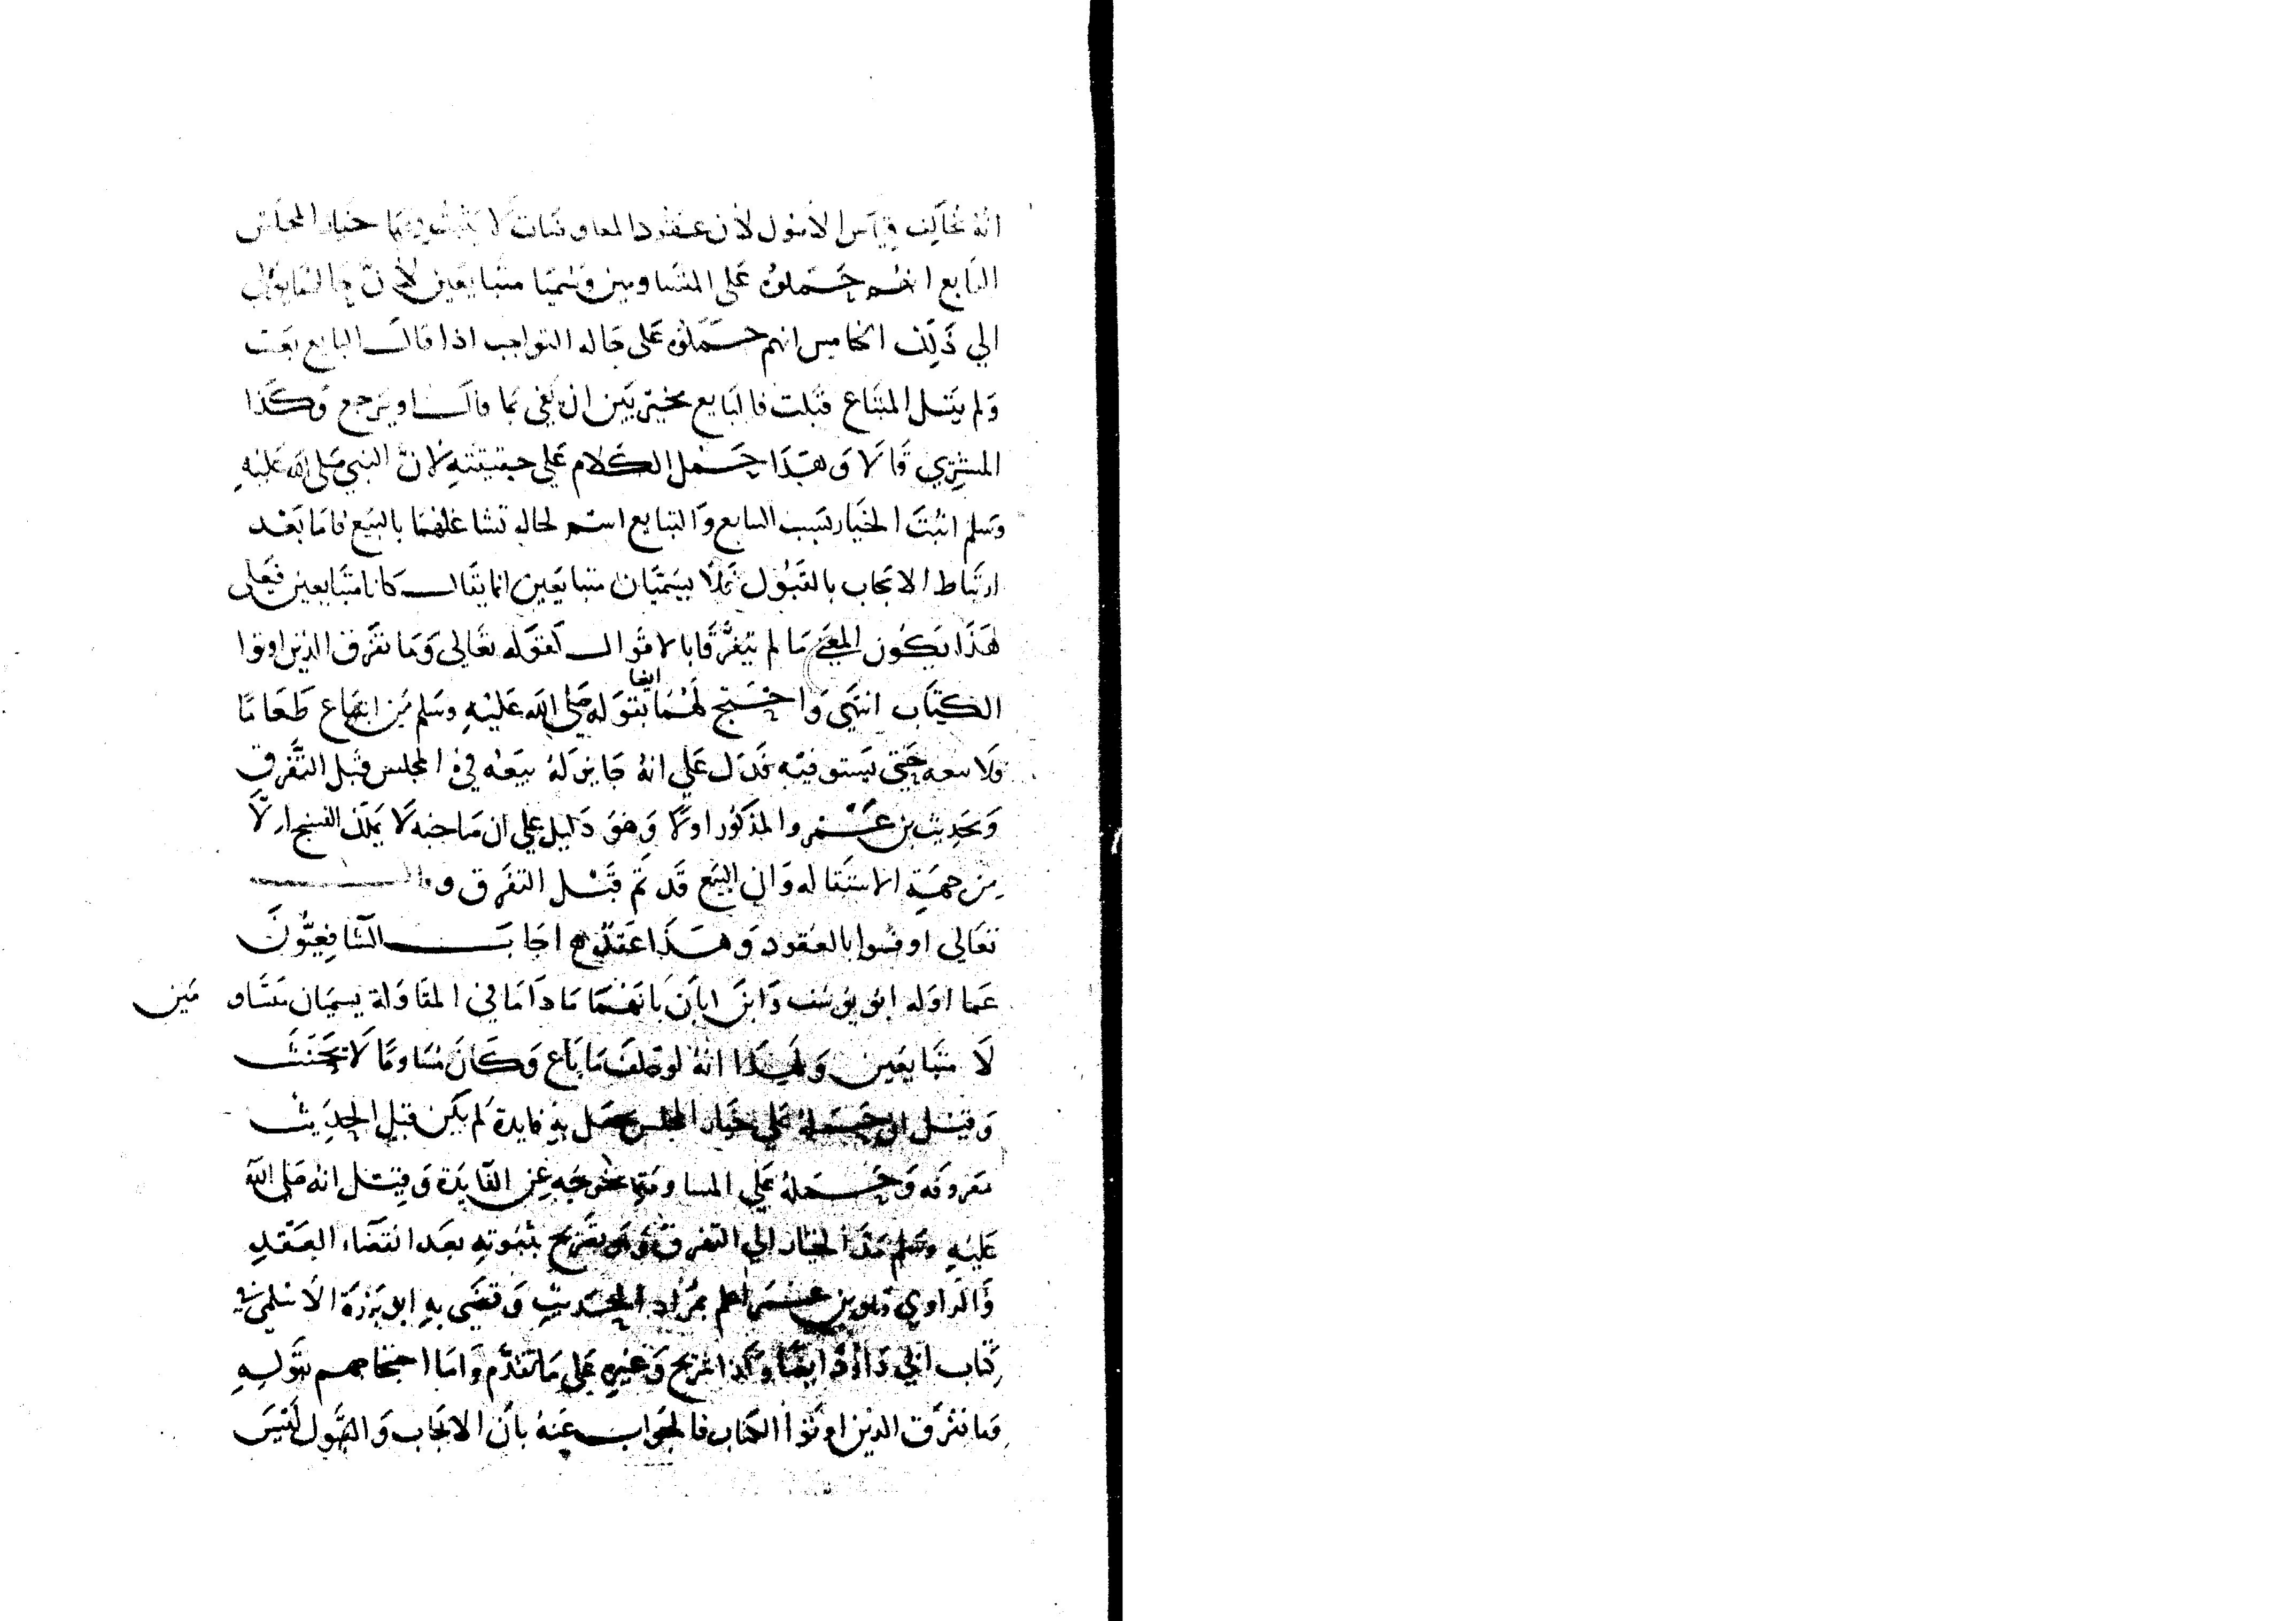 انه يخالف قياس الاصول لان عقود المعاوضات لا يثبت فيها خيار المجلس
الرابع انهم حملوه على المتساومين وسميا متبايعين لان حالهما يؤل
الي ذلك الخامس انهم حملوه على حاله التواجب اذا قال البايع بعت
ولم يقل المبتاع قبلت فالبايع مخير بين ان يفي بما قال او يرجع وكذا
المشتري قالا وهذا حمل الكلام علي حقيقته لان النبي صلى الله عليه
وسلم اثبت الخيار بسبب التبايع والتبايع اسم لحاله تشاغلهما بالبيع فاما بعد
ارتباط الايجاب بالقبول فلا يسميان متبايعين انما يقال كانا متبايعين فعلى
هذا يكون المعنى ما لم يتفرقا بالاقوال كقوله تعالى وما تفرق الذين اوتوا
الكتاب انتهى واحتج لهما ايضا بقوله صلى الله عليه وسلم من ابتاع طعاما
فلا يبعه حتى يستوفيه فدل علي انه جايز له بيعه في المجلس قبل التفرق
وبحديث بن عمرو المذكور اولا وهو دليل علي ان صاحبه لا يملك الفسخ الا
من جهة الاستقاله وان البيع قد تم قبل التفرق وقال
تعالى اوفوا بالعقود وهذا عقد اجاب الشافعيون
عما اوله ابو يوسف وابن ابان بانهما ما داما في المقاولة يسميان متساومين
لا متبايعين ولهذا انه لو حلف ما باع وكان مساوما لا يحنث
وقيل ان حمله علي خيار المجلس يحصل به فايدة لم يكن قبل الحديث
معروفه وحمله علي المساومة يخرجه عن الفايدة وقيل انه صلى الله
عليه وسلم مد الخيار الي التفرق وهو تصريح بثبوته بعد انقضاء العقد
والراوي وهو بن عمر اعلم بمراد الحديث وقضى به ابو برزة الاسلمي في
كتاب ابي داود ايضا وكذا شريح وغيره على ما تقدم واما احتجاجهم بقوله
وما تفرق الذين اوتوا الكتاب فالجواب عنه بان الايجاب والقبول ليس